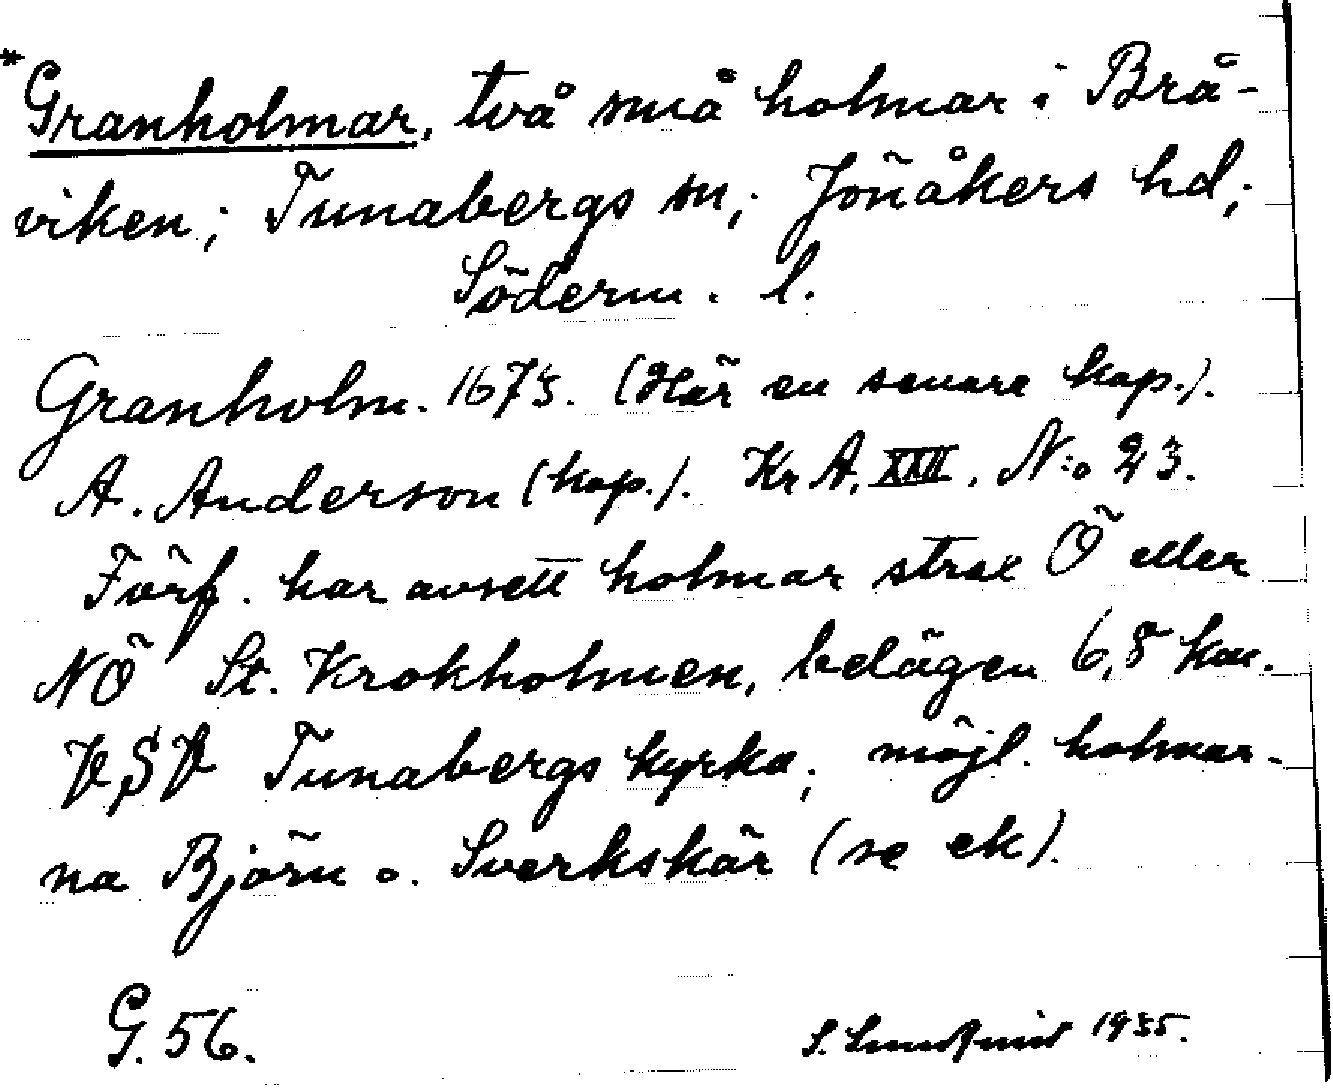 *Granholmar, två små holmar i Brå-
viken; Tunabergs sn; Jönåkers hd;
Söderm. l.
Granholm. 1673. (Här en senare kop.).
A. Anderson (kop.). Kr A. XXII. N:o 23.
Förf. har avsett holmar strax Ö eller
NÖ St. Krokholmen, belägen 6,8 km.
VSV Tunabergs kyrka; möjl. holmar-
na Björn o. Sverkskär (se ek).
G. 56.
S. Lundquist 1935.